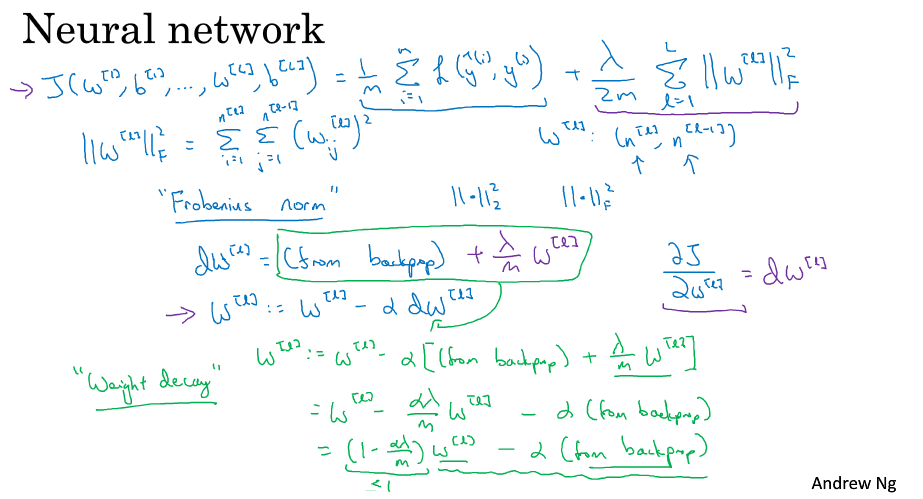 Neural network
→ J(w^[1], b^[1], ..., w^[L], b^[L]) = 1/m Σ_{i=1}^{n} L(ŷ^(i), y^(i)) + λ/2m Σ_{l=1}^{L} ||w^[l]||_F^2
||w^[l]||_F^2 = Σ_{i=1}^{n^[l]} Σ_{j=1}^{n^[l-1]} (w_ij^[l])^2
w^[l]: (n^[l], n^[l-1])
↑ ↑
"Frobenius norm" ||·||_2^2 ||·||_F^2
dw^[l] = (from backprop) + λ/m w^[l]
∂J/∂w^[l] = dw^[l]
→ w^[l] := w^[l] - α dw^[l]
"Weight decay"
w^[l] := w^[l] - α[(from backprop) + λ/m w^[l]]
= w^[l] - αλ/m w^[l] - α (from backprop)
= (1 - αλ/m) w^[l] - α (from backprop)
<1
Andrew Ng